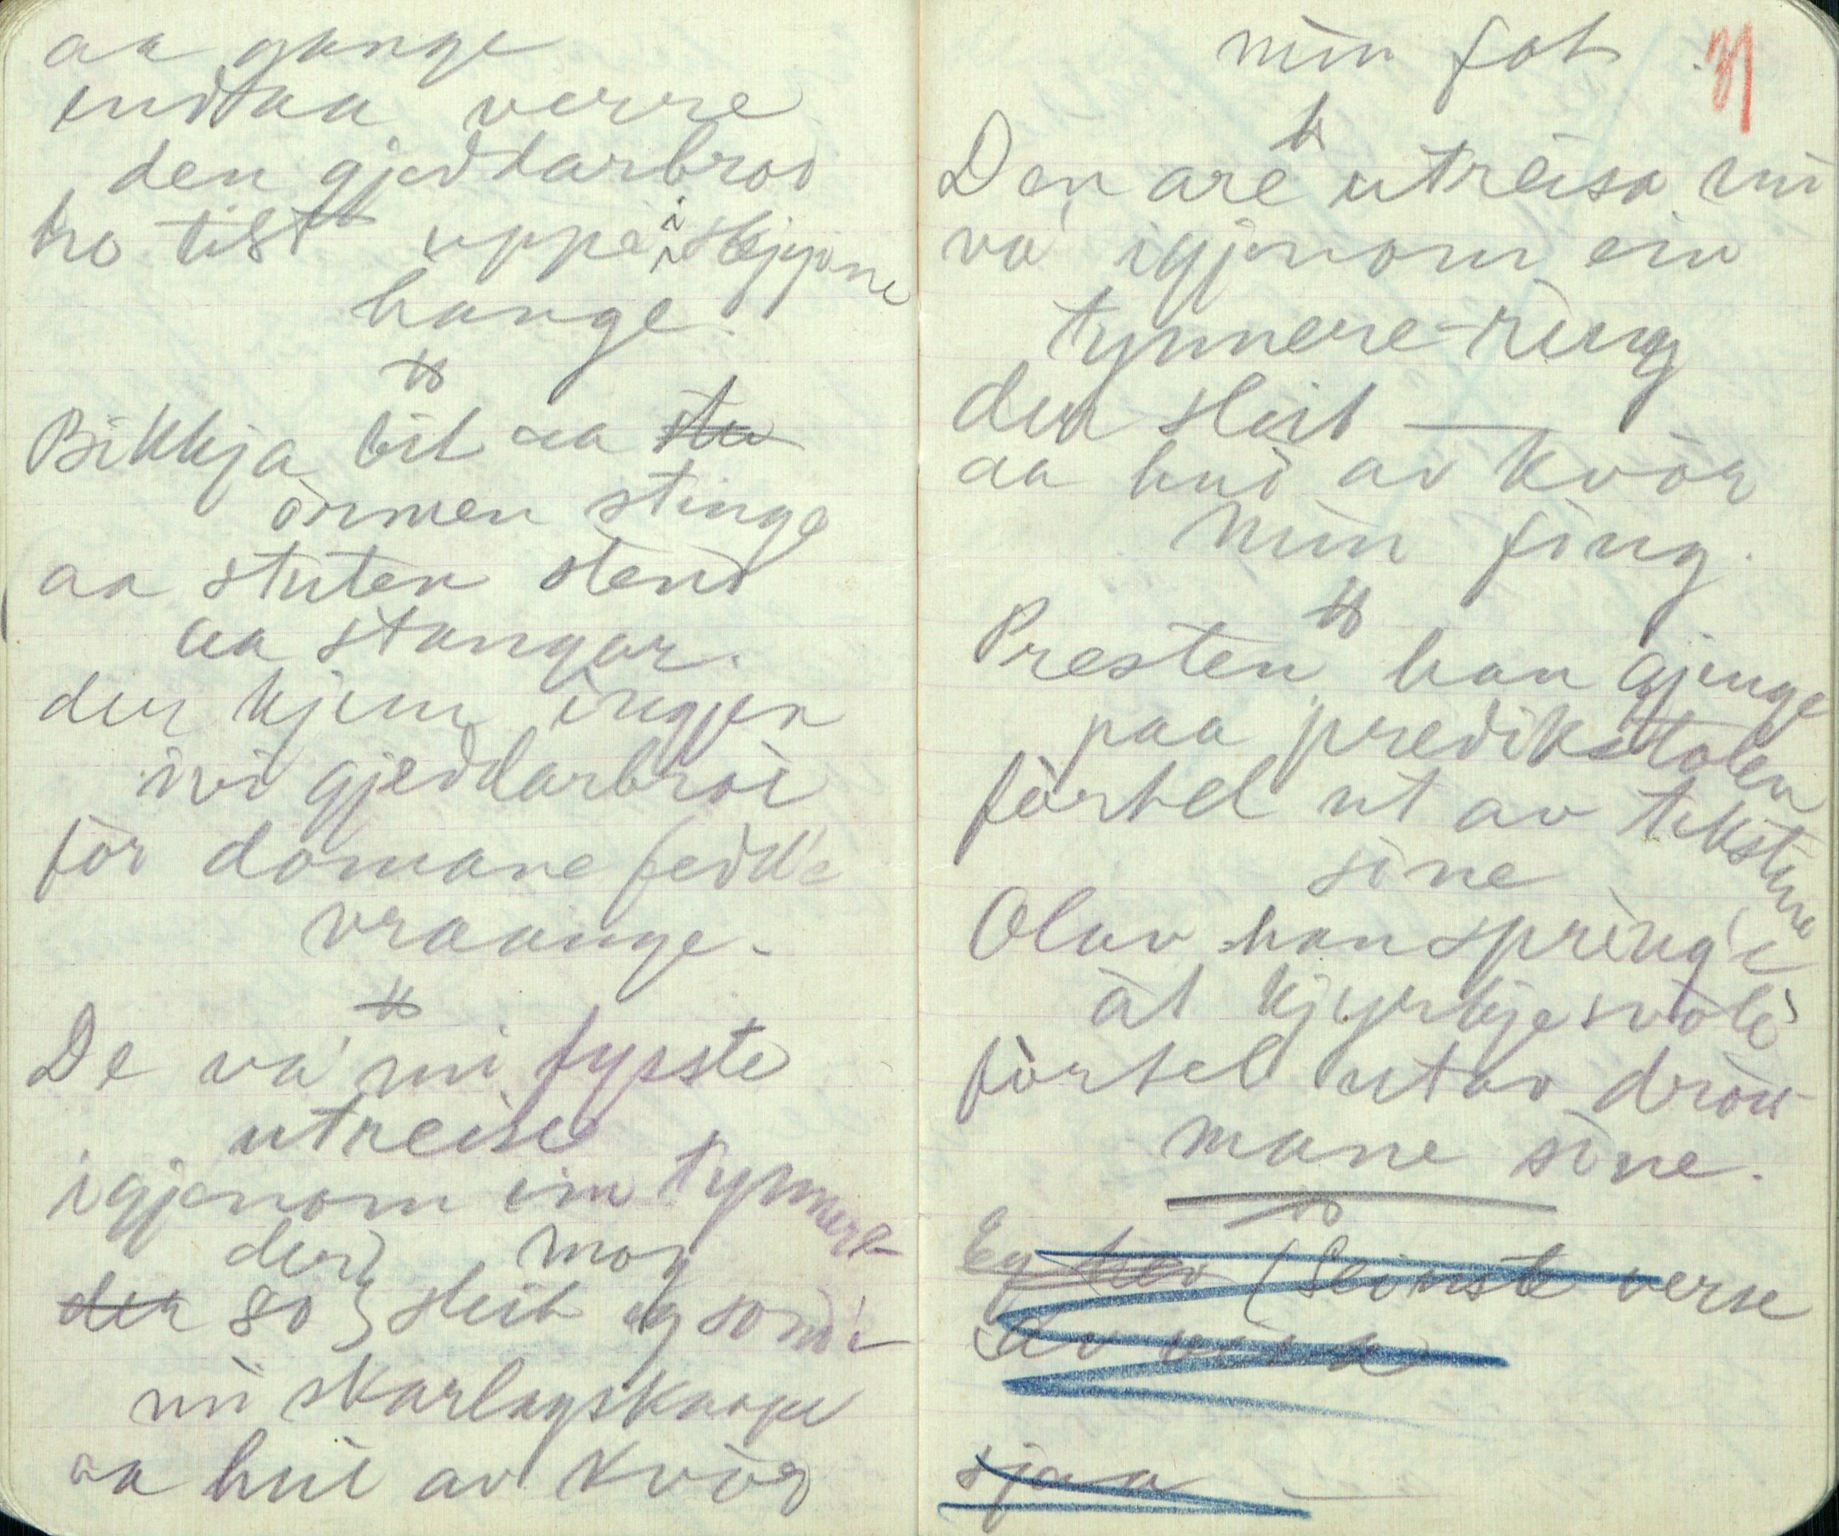 aa gange
endaa verre
den gjeddarbroi
ho tist uppe i skjyane
hange.
Bikkja bit aa stu
ormen stinge
aa stuten stend
aa stangar.
der kjem ingjen
ivi gjeddarbròi
fòr domane fedd'e
vraange.
De va' mi fysste
utreise
igjenom ein tynnere
der mog
der so sleit eg sond'e
mi skarlagskaape
aa hui av kvòr
min fot
31
Den are utreisa mi
va' igjenom ein
tynnere-ring
der sleit —
aa hui av kvòr
min fing.
Presten han gjenge
paa predikstolen
fòrtel ut av tekstine
sine
Olav han spring'e
åt kjyrkjesvòle
fòrtel utav drou-
mane sine.
Eg hev (Seinste verse
av visa
sjaa —